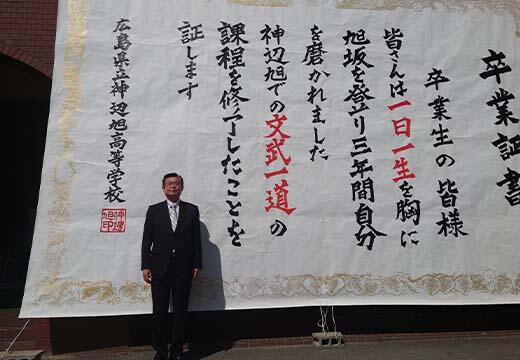 卒業証書
卒業生の皆様
皆さんは一日一生を胸に
旭坂を登り三年間自分
を磨かれました
神辺旭での文武一道の
課程を修了したことを
証します
広島県立神辺旭高等学校